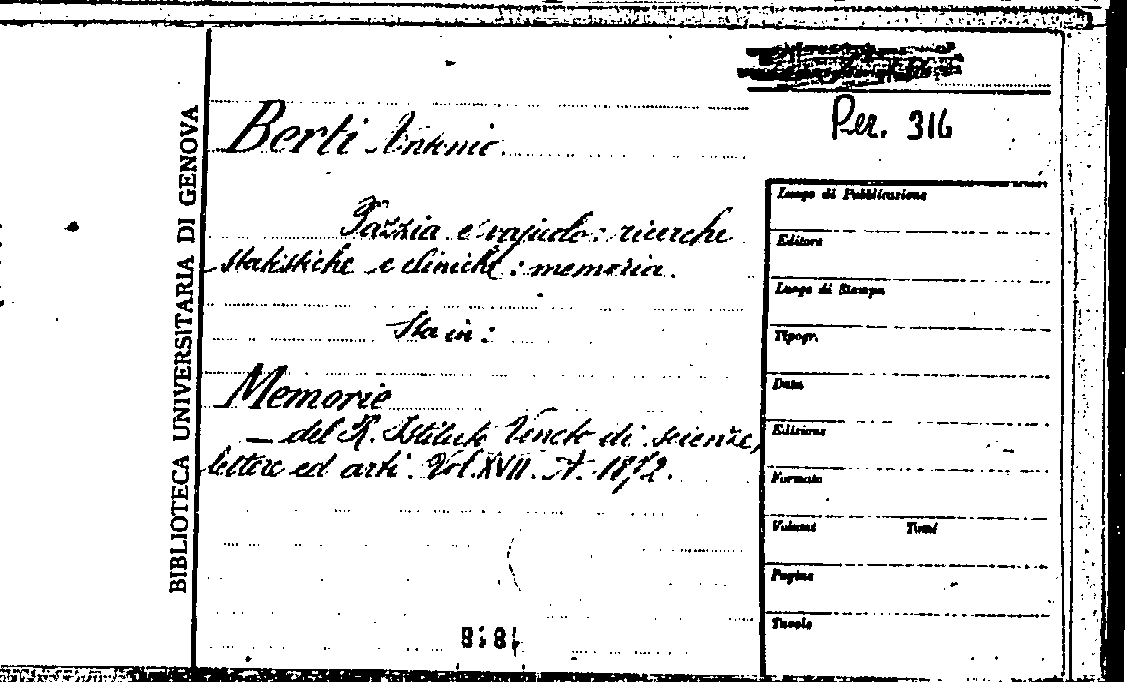 BIBLIOTECA UNIVERSITARIA DI GENOVA
Per. 316
Berti Antonio
Pazzia e vajuolo: ricerche
statistiche e cliniche: memoria.
Sta in:
Memorie
— del R. Istituto Veneto di scienze,
lettere ed arti. Vol. XVII. A. 1872.
Luogo di Pubblicazione
Editore
Luogo di Stampa
Tipogr.
Data
Edizione
Formato
Volumi Tomi
Pagine
Tavole